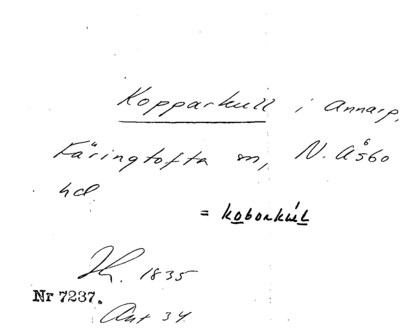 Kopparkull i Annarp,
Färingtofta sn, N. Åsbo
hd
= koborkúl
1835
Nr 7237.
Ant 34